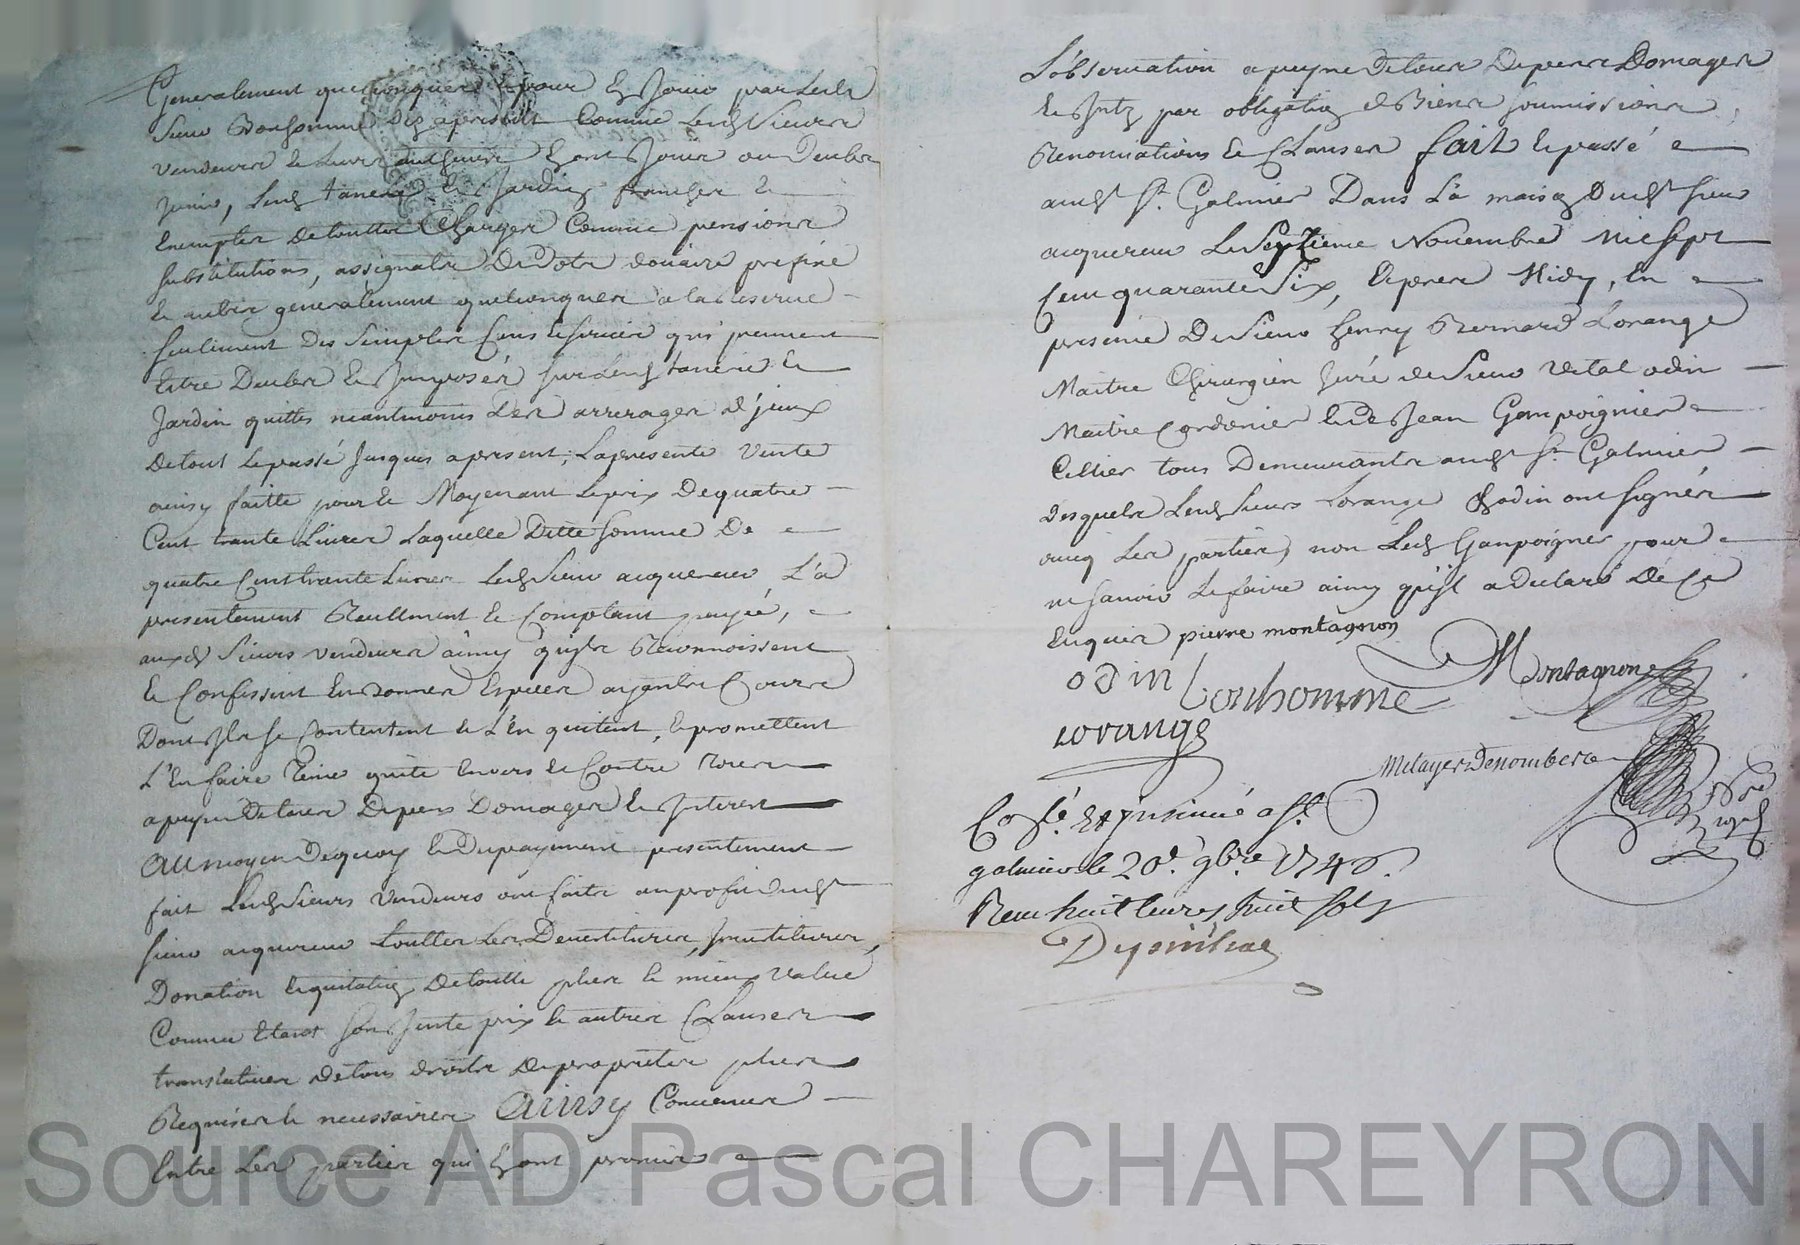 Generalement quelconques et pour en Jouir par Ledt
Sieur Bonhomme des apresent Comme Lesdts Sieurs
vendeurs et Leurs autheurs En ont Jouis ou Deubs
Jouir, Lesd tanerie et Jardin francher et
Exempter de touttes Charges Comme pensions
substitutions, assignats De Dote douaire prefixe
et autres generalement quelconques a la Reserve
seulement Des simples Cens et service qui peuvent
Estre Deubs et Imposés sur Lesd tanerie et
Jardin quittes neantmoins des arrerages d'jceux
de tout Le passé Jusques a present; La presente Vente
ainsy faitte pour et Moyenant Le prix De quatre
Cent trante Livres Laquelle Ditte somme De
quatre Cent trante Livres Ledt Sieur acquereur L'a
presentement Reellement et Comptant payée,
auxd Sieurs vendeurs ainsy qu'jls Reconnoissent
et Confessent En bonnes Especes argents Cours
Dont Jls se Contentent et L'en quitent, et promettent
L'En faire Tenir quite Envers et Contre Tous
a peyne De tous Depens Domages et Jnterest
au moyen Dequoy et Du payement presentement
fait Lesdt Sieurs Vendeurs ont faits au profit dudt
sieur acquereur touttes Les Devestitures, Jnvestitures,
Donation Equitation De toutte plus et mieux value
Comme Etant son Juste prix et autres Clauses
translatives de tous droits De proprietés plus
Requises et necessaires Ainsy Convenu
Entre Les parties qui En ont promis
L'observation a peyne De tous Depens Domages
et Jntz par obligation de Biens soumissions
Renonciations et Clauses fait et passé
audt St. Galmier Dans La maison Dudt sieur
acquereur Le Septieme Novembre mil sept
Cent quarante Six, apres Midy, En
presence De Sieur henry Bernard Lorange
Maitre Chirurgien Juré de Sieur Vital odin
Maitre Cordonier et de Jean Ganpoignier
Cellier tous Demeurants audt St. Galmier
desquels Lesdt sieurs Lorange & odin ont signés
avec Les parties, non Ledt Ganpoignier pour
ne savoir Le faire ainsy qu'jl a declaré De Ce
Enquis pierre montagnon
Montagnone
odin bonhomme
Lorange
Mclayer Denombere
Nore
royal
Coslé. Et jnsinué a St.
galmier le 20e. 9bre 1746.
Receu huit livres huit sols